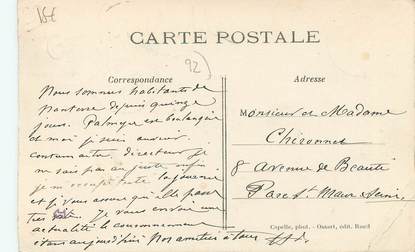 15€
CARTE POSTALE
92
Correspondance
Adresse
Nous sommes habitants de
Nanterre depuis quinze
jours. Palmyre est boulangère
et moi je suis
directeur je
ne sais pas au juste enfin
je m'occupe toute la journée
et je vous assure qu'elle passe
très Je vous envoie une
actualité le
aujourd'hui Nos amitiés à tous
Monsieur et Madame
8 avenue de Beauté
Parc St Maur Seine
Capelle, phot. - Ouzart, édit. Rueil